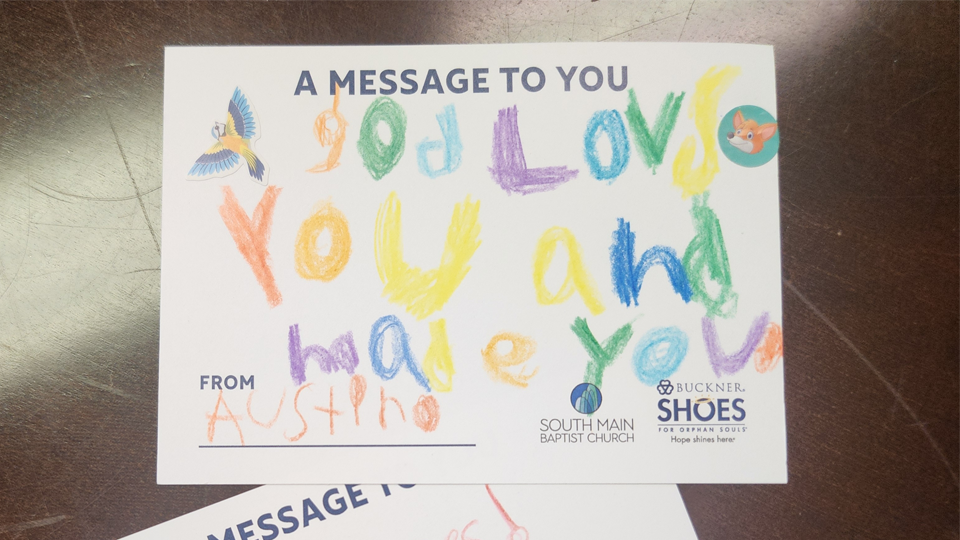 A MESSAGE TO YOU
god LovS
You and
made you
FROM
AUStino
SOUTH MAIN
BAPTIST CHURCH
BUCKNER
SHOES
FOR ORPHAN SOULS
Hope shines here
MESSAGE TO